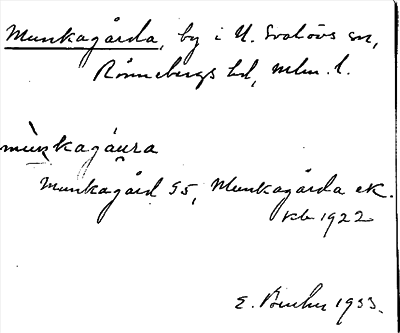 Munkagårda, by i N. Svalövs sn,
Rönnebergs hd, Mlm. l.
mùnkagáura
Munkagård 55, Munkagårda ek.
kb 1922
E. 1933.